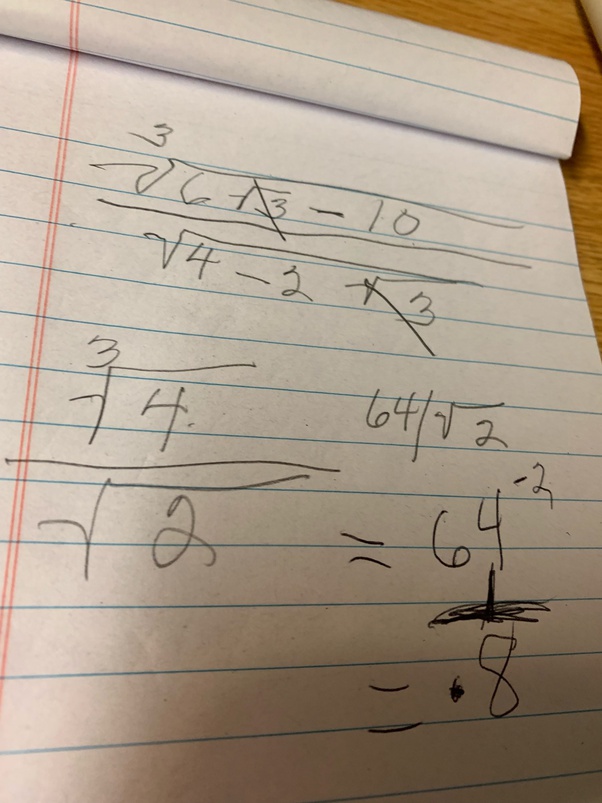 3
√6√3 - 10
√4 - 2 √3
3
√4
√2
64/√2
= 64⁻²
= .8